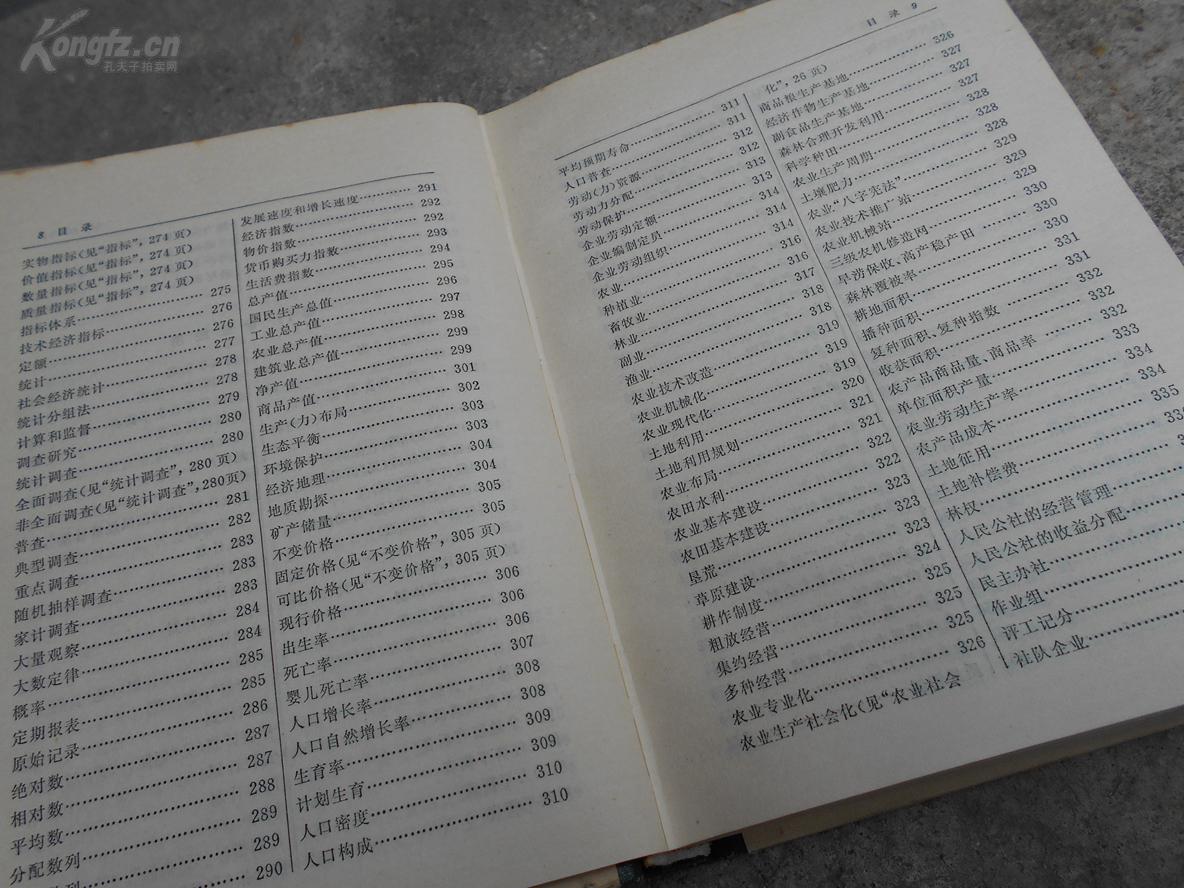 8 目 录
实物指标(见“指标”, 274页)
价值指标(见“指标”, 274页)
数量指标(见“指标”, 274页)
质量指标(见“指标”, 274页)
指标体系……275
技术经济指标……276
定额……276
统计……277
社会经济统计……278
统计分组法……278
计算和监督……279
调查研究……280
统计调查……280
全面调查(见“统计调查”, 280页)
非全面调查(见“统计调查”,280页)
普查……281
典型调查……282
重点调查……283
随机抽样调查……283
家计调查……283
大量观察……284
大数定律……284
概率……285
定期报表……285
原始记录……286
绝对数……287
相对数……287
平均数……288
分配数列……289
数列……289
290
发展速度和增长速度……291
经济指数……292
物价指数……292
货币购买力指数……293
生活费指数……294
总产值……295
国民生产总值……296
工业总产值……297
农业总产值……298
建筑业总产值……299
净产值……299
商品产值……301
生产(力)布局……302
生态平衡……303
环境保护……303
经济地理……304
地质勘探……304
矿产储量……305
不变价格……305
固定价格(见“不变价格”, 305页)
可比价格(见“不变价格”, 305页)
现行价格……306
出生率……306
死亡率……306
婴儿死亡率……307
人口增长率……308
人口自然增长率……308
生育率……309
计划生育……309
人口密度……310
人口构成……310
目 录 9
平均预期寿命……311
人口普查……311
劳动(力)资源……312
劳动力分配……312
劳动保护……313
企业劳动定额……313
企业编制定员……314
企业劳动组织……314
农业……314
种植业……316
畜牧业……316
林业……317
副业……318
渔业……318
农业技术改造……319
农业机械化……319
农业现代化……319
土地利用……320
土地利用规划……321
农业布局……321
农田水利……322
农业基本建设……322
农田基本建设……323
垦荒……323
草原建设……323
耕作制度……324
粗放经营……325
集约经营……325
多种经营……325
农业专业化……326
农业生产社会化(见“农业社会
化”, 26页)
商品粮生产基地……326
经济作物生产基地……327
副食品生产基地……327
森林合理开发利用……327
科学种田……328
农业生产周期……328
土壤肥力……329
农业“八字宪法”……329
农业技术推广站……329
农业机械站……330
三级农机修造网……330
旱涝保收、高产稳产田……330
森林覆被率……331
耕地面积……331
播种面积……332
复种面积、复种指数……332
收获面积……332
农产品商品量、商品率……333
单位面积产量……334
农业劳动生产率……334
农产品成本……335
土地征用
土地补偿费
林权
人民公社的经营管理
人民公社的收益分配
民主办社
作业组
评工记分
社队企业
Kongfz.cn
孔夫子拍卖网